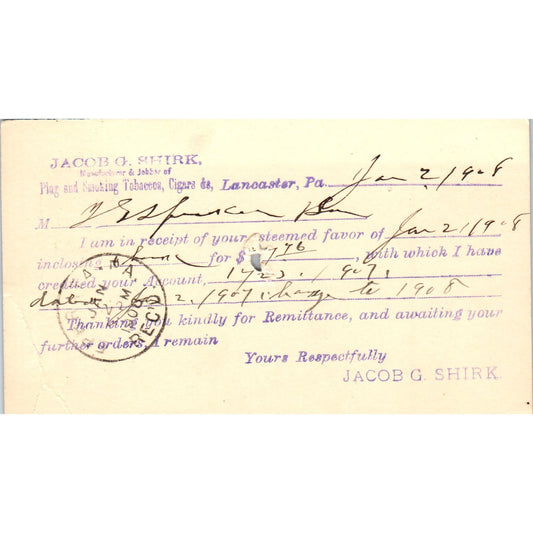 JACOB G. SHIRK,
Manufacturer & Jobber of
Plug and Smoking Tobaccos, Cigars &c, Lancaster, Pa. Jan 2 1908
M
I am in receipt of your esteemed favor of Jan 2, 1908
inclosing for $ 76, with which I have
credited your Account,
dated 2, 1907 change to 1908
Thanking you kindly for Remittance, and awaiting your
further orders, I remain
Yours Respectfully
JACOB G. SHIRK.
JAN
REC'D